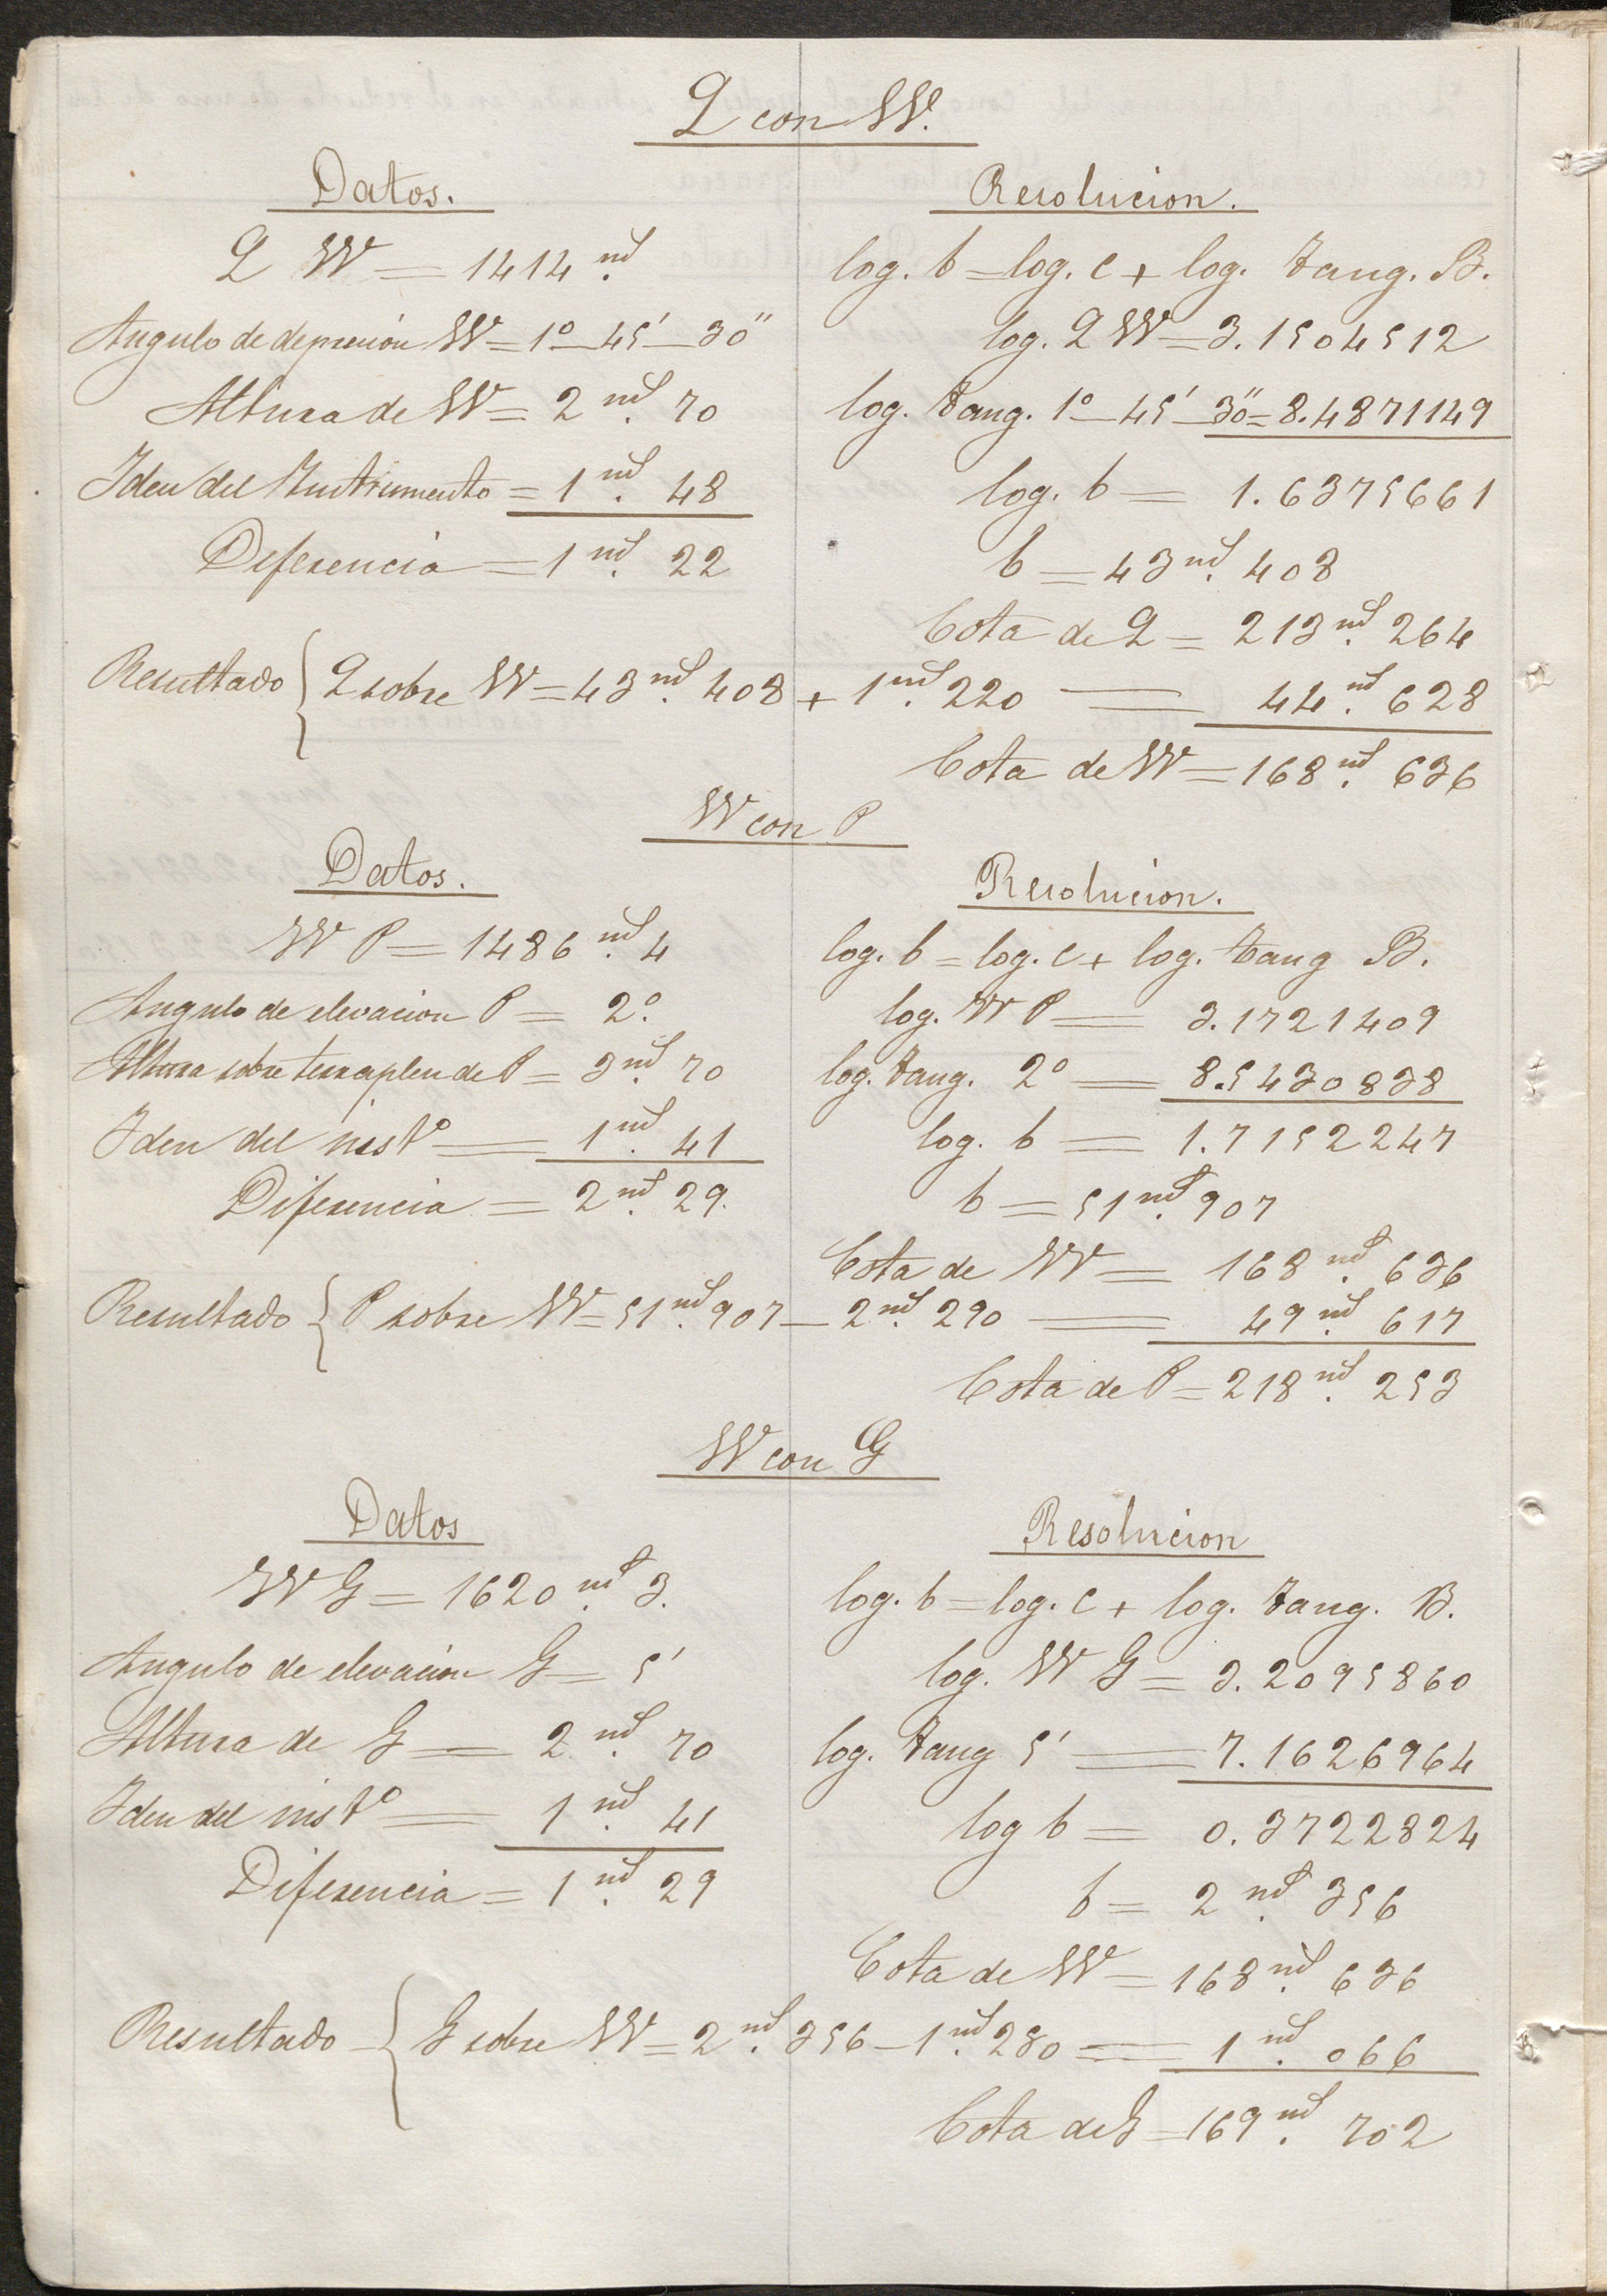 Q con W.
Datos.
Q W = 1414 m.
Angulo de depresión W = 1° – 45' – 30"
Altura de W = 2 m. 70
Iden del Instrumento = 1 m. 48
Diferencia = 1 m. 22
Resolucion.
log. b = log. c + log. tang. B.
log. Q W = 3.1504512
log. tang. 1° – 45' – 30" = 8.4871149
log. b = 1.6375661
b = 43 m. 408
Cota de Q = 213 m. 264
Resultado { Q sobre W = 43 m. 408 + 1 m. 220 = 44 m. 628
Cota de W = 168 m. 636
W con P
Datos.
W P = 1486 m. 4
Angulo de elevacion P = 2°.
Altura sobre terraplen de P = 3 m. 70
Iden del inst° = 1 m. 41
Diferencia = 2 m. 29.
Resolucion.
log. b = log. c + log. tang B.
log. W P = 3.1721409
log. tang. 2° = 8.5430838
log. b = 1.7152247
b = 51 m. 907
Cota de W = 168 m. 636
Resultado { P sobre W = 51 m. 907 – 2 m. 290 = 49 m. 617
Cota de P = 218 m. 253
W con G
Datos
W G = 1620 m. 3.
Angulo de elevacion G = 5'
Altura de G = 2 m. 70
Iden del inst° = 1 m. 41
Diferencia = 1 m. 29
Resolucion
log. b = log. c + log. tang. B.
log. W G = 3.2095860
log. tang 5' = 7.1626964
log b = 0.3722824
b = 2 m. 356
Cota de W = 168 m. 636
Resultado { G sobre W = 2 m. 356 – 1 m. 290 = 1 m. 066
Cota de G = 169 m. 702